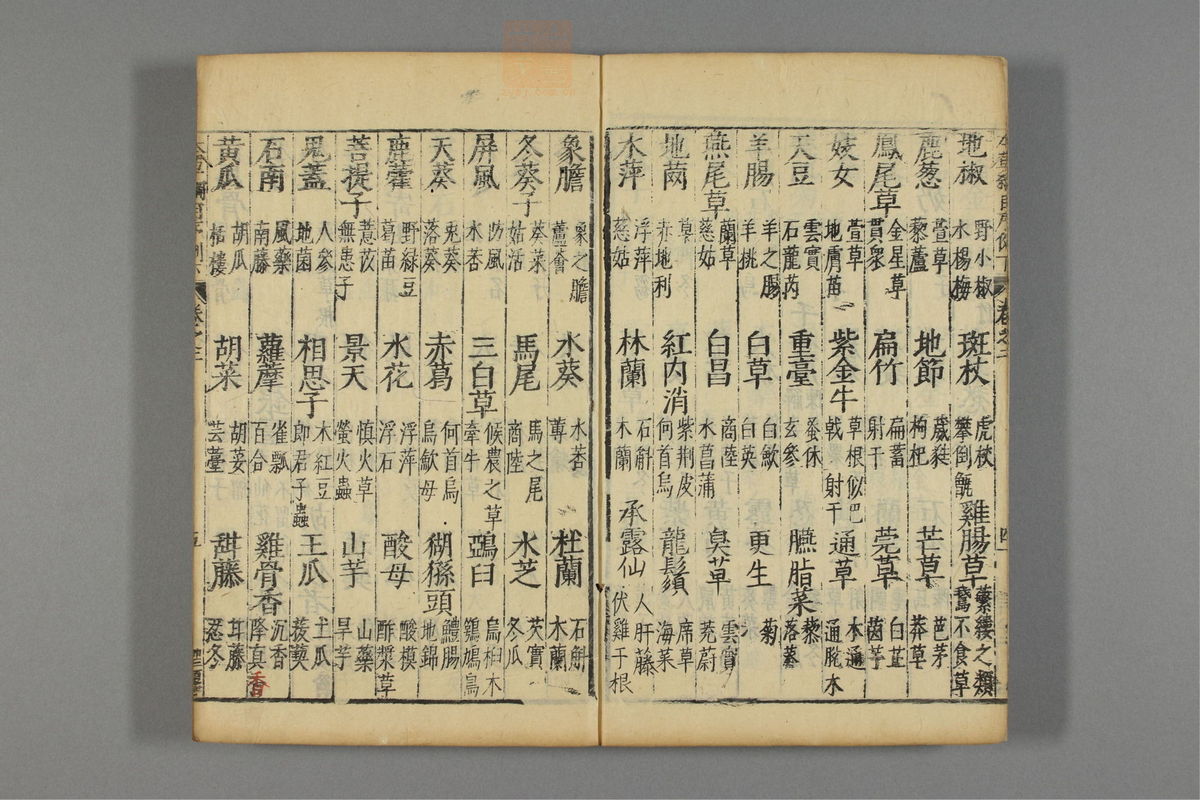 地椒 野小椒 水楊梅 斑杖 虎杖 攀倒甑 雞腸草 蘩縷之類 鵞不食草
鹿葱 萱草 藜蘆 地節 葳蕤 枸杞 芒草 芭茅 莽草
鳳尾草 金星草 貫衆 扁竹 扁蓄 射干 莞草 白芷 茵芋
妓女 萱草 地膚苗 紫金牛 草根似巴戟 射干 通草 木通 通脫木
天豆 雲實 石龍芮 重臺 蚤休 玄參 臙脂菜 藜 落葵
羊腸 羊之腸 羊桃 白草 白斂 白英 更生 菊
燕尾草 蘭草 慈姑 白昌 商陸 水菖蒲 臭草 雲實 茺蔚
地菌 赤地利 紅內消 紫荆皮 何首烏 龍鬚 席草 海菜
木萍 浮萍 慈姑 林蘭 石斛 木蘭 承露仙 人肝藤 伏雞子根
四
象膽 象之膽 蘆薈 水葵 水莕 蓴 杜蘭 石斛 木蘭
冬葵子 葵菜 姑活 馬尾 馬之尾 商陸 水芝 芡實 冬瓜
屏風 防風 水莕 三白草 候農之草 牽牛 鵶臼 烏桕木 鵶鳩鳥
天葵 兎葵 落葵 赤葛 何首烏 烏斂母 猢猻頭 鱧腸 地錦
鹿藿 野綠豆 葛苗 水花 浮萍 浮石 酸母 酸模 酢漿草
菩提子 薏苡 無患子 景天 慎火草 螢火蟲 山芋 山藥 旱芋
鬼蓋 人參 地菌 相思子 木紅豆 郎君子蟲 王瓜 土瓜 菝葜
石南 風藥 南藤 蘿藦 雀瓢 百合 雞骨香 沉香 降真香
黃瓜 胡瓜 栝樓 胡菜 胡荽 芸薹 甜藤 耳藤 忍冬
卷之三
五